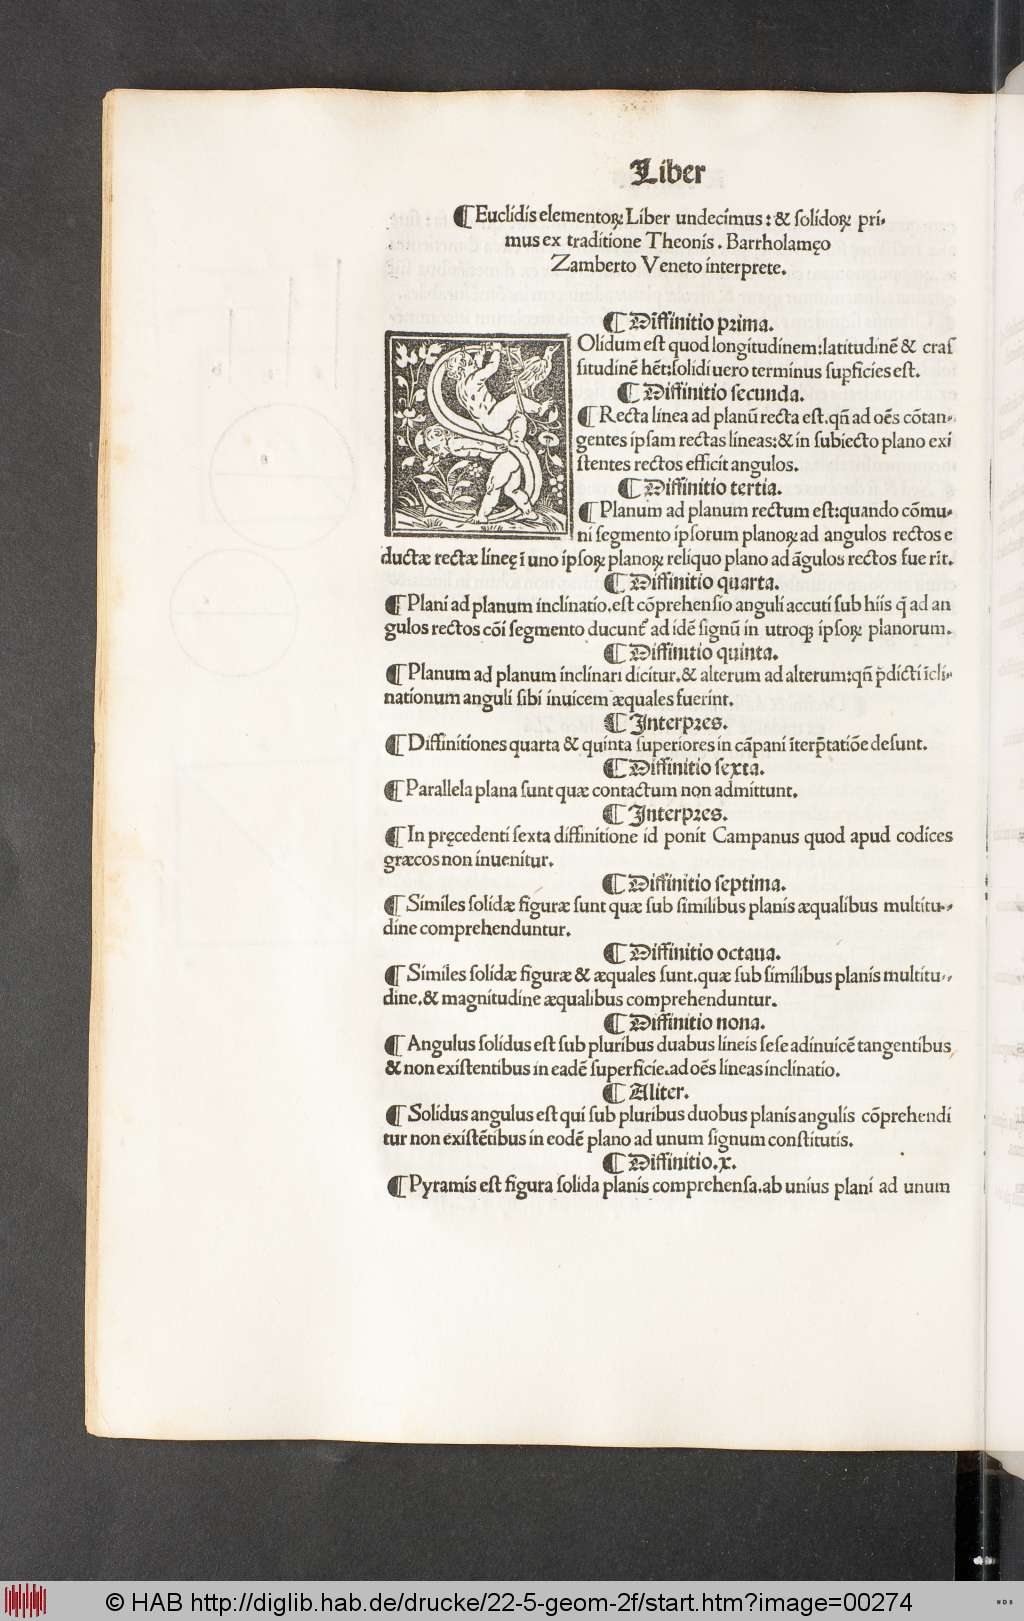 Liber
¶Euclidis elementoꝝ Liber undecimus: & solidoꝝ pri⸗
mus ex traditione Theonis. Barrholamęo
Zamberto Veneto interprete.
¶Diffinitio prima.
SOlidum est quod longitudinem:latitudinē & cras
situdinē hēt:solidi uero terminus suꝑficies est.
¶Diffinitio secunda.
¶Recta linea ad planū recta est.qñ ad oēs cōtan⸗
gentes ipsam rectas lineas:& in subiecto plano exi
stentes rectos efficit angulos.
¶Diffinitio tertia.
¶Planum ad planum rectum est:quando cōmu⸗
ni segmento ipsorum planoꝝ ad angulos rectos e
ductæ rectæ lineę ī uno ipsoꝝ planoꝝ reliquo plano ad āgulos rectos fue rīt.
¶Diffinitio quarta.
¶Plani ad planum inclinatio.est cōprehensio anguli accuti sub hiis q̄ ad an
gulos rectos cōi segmento ducunt᷑ ad idē signū in utroqꝫ ipsoꝝ planorum.
¶Diffinitio quinta.
¶Planum ad planum inclinari dicitur.& alterum ad alterum:qñ p̄dicti īcli⸗
nationum anguli sibi inuicem æquales fuerint.
¶Interpres.
¶Diffinitiones quarta & quinta superiores in cāpani īterp̄tatiōe desunt.
¶Diffinitio sexta.
¶Parallela plana sunt quæ contactum non admittunt.
¶Interpres.
¶In pręcedenti sexta diffinitione id ponit Campanus quod apud codices
græcos non inuenitur.
¶Diffinitio septima.
¶Similes solidæ figuræ sunt quæ sub similibus planis æqualibus multitu⸗
dine comprehenduntur.
¶Diffinitio octaua.
¶Similes solidæ figuræ & æquales sunt.quæ sub similibus planis multitu⸗
dine.& magnitudine æqualibus comprehenduntur.
¶Diffinitio nona.
¶Angulus solidus est sub pluribus duabus lineis sese adinuicē tangentibus
& non existentibus in eadē superficie.ad oēs lineas inclinatio.
¶Aliter.
¶Solidus angulus est qui sub pluribus duobus planis angulis cōprehendi
tur non existētibus in eodē plano ad unum signum constitutis.
¶Diffinitio.x.
¶Pyramis est figura solida planis comprehensa.ab unius plani ad unum
© HAB http://diglib.hab.de/drucke/22-5-geom-2f/start.htm?image=00274